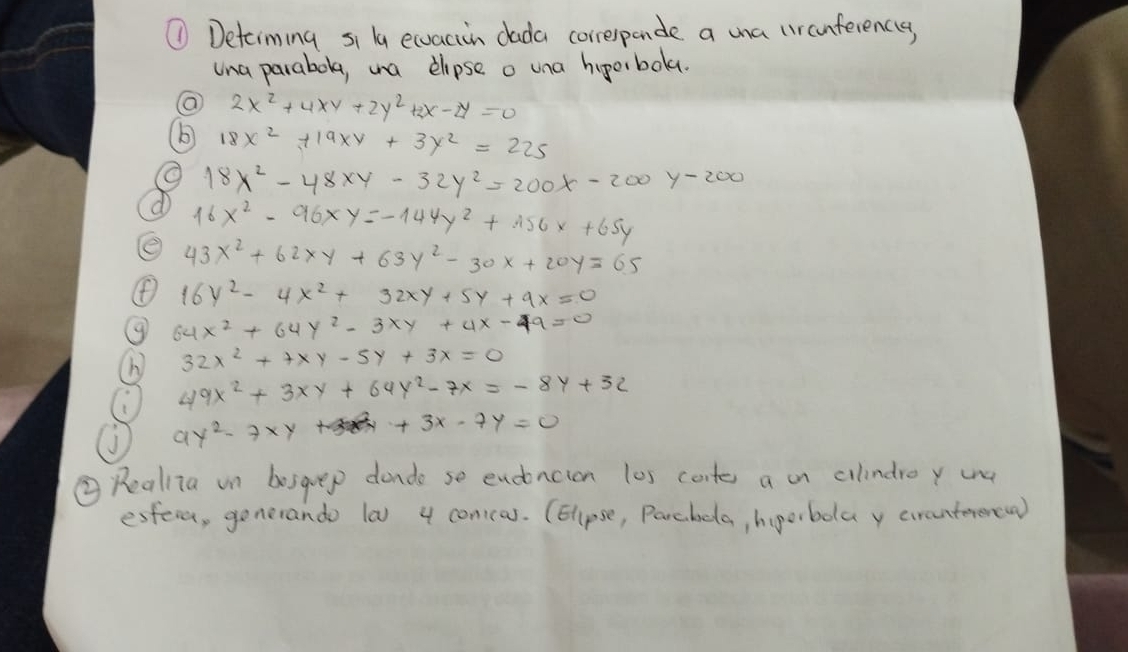 ① Determina si la ecuación dada corresponde a una circunferencia,
una parabola, una élipse o una hiperbola.
ⓐ 2x² + 4xy + 2y² +2x - 2y = 0
ⓑ 18x² + 19xy + 3y² = 225
ⓒ 18x² - 48xy - 32y² = 200x - 200y - 200
ⓓ 16x² - 96xy = -144y² + 156x + 65y
ⓔ 43x² + 62xy + 63y² - 30x + 20y = 65
ⓕ 16y² - 4x² + 32xy + 5y + 9x = 0
ⓖ 64x² + 64y² - 3xy + 4x - 49 = 0
ⓗ 32x² + 7xy - 5y + 3x = 0
ⓘ 49x² + 3xy + 64y² - 7x = - 8y + 32
ⓙ 9y² - 7xy + 3x - 7y = 0
② Realiza un bosquejo donde se evidencien los cortes a un cilindro y una
esfera, generando las 4 conicas. (Elipse, Parabola, hiperbola y circunferencia)